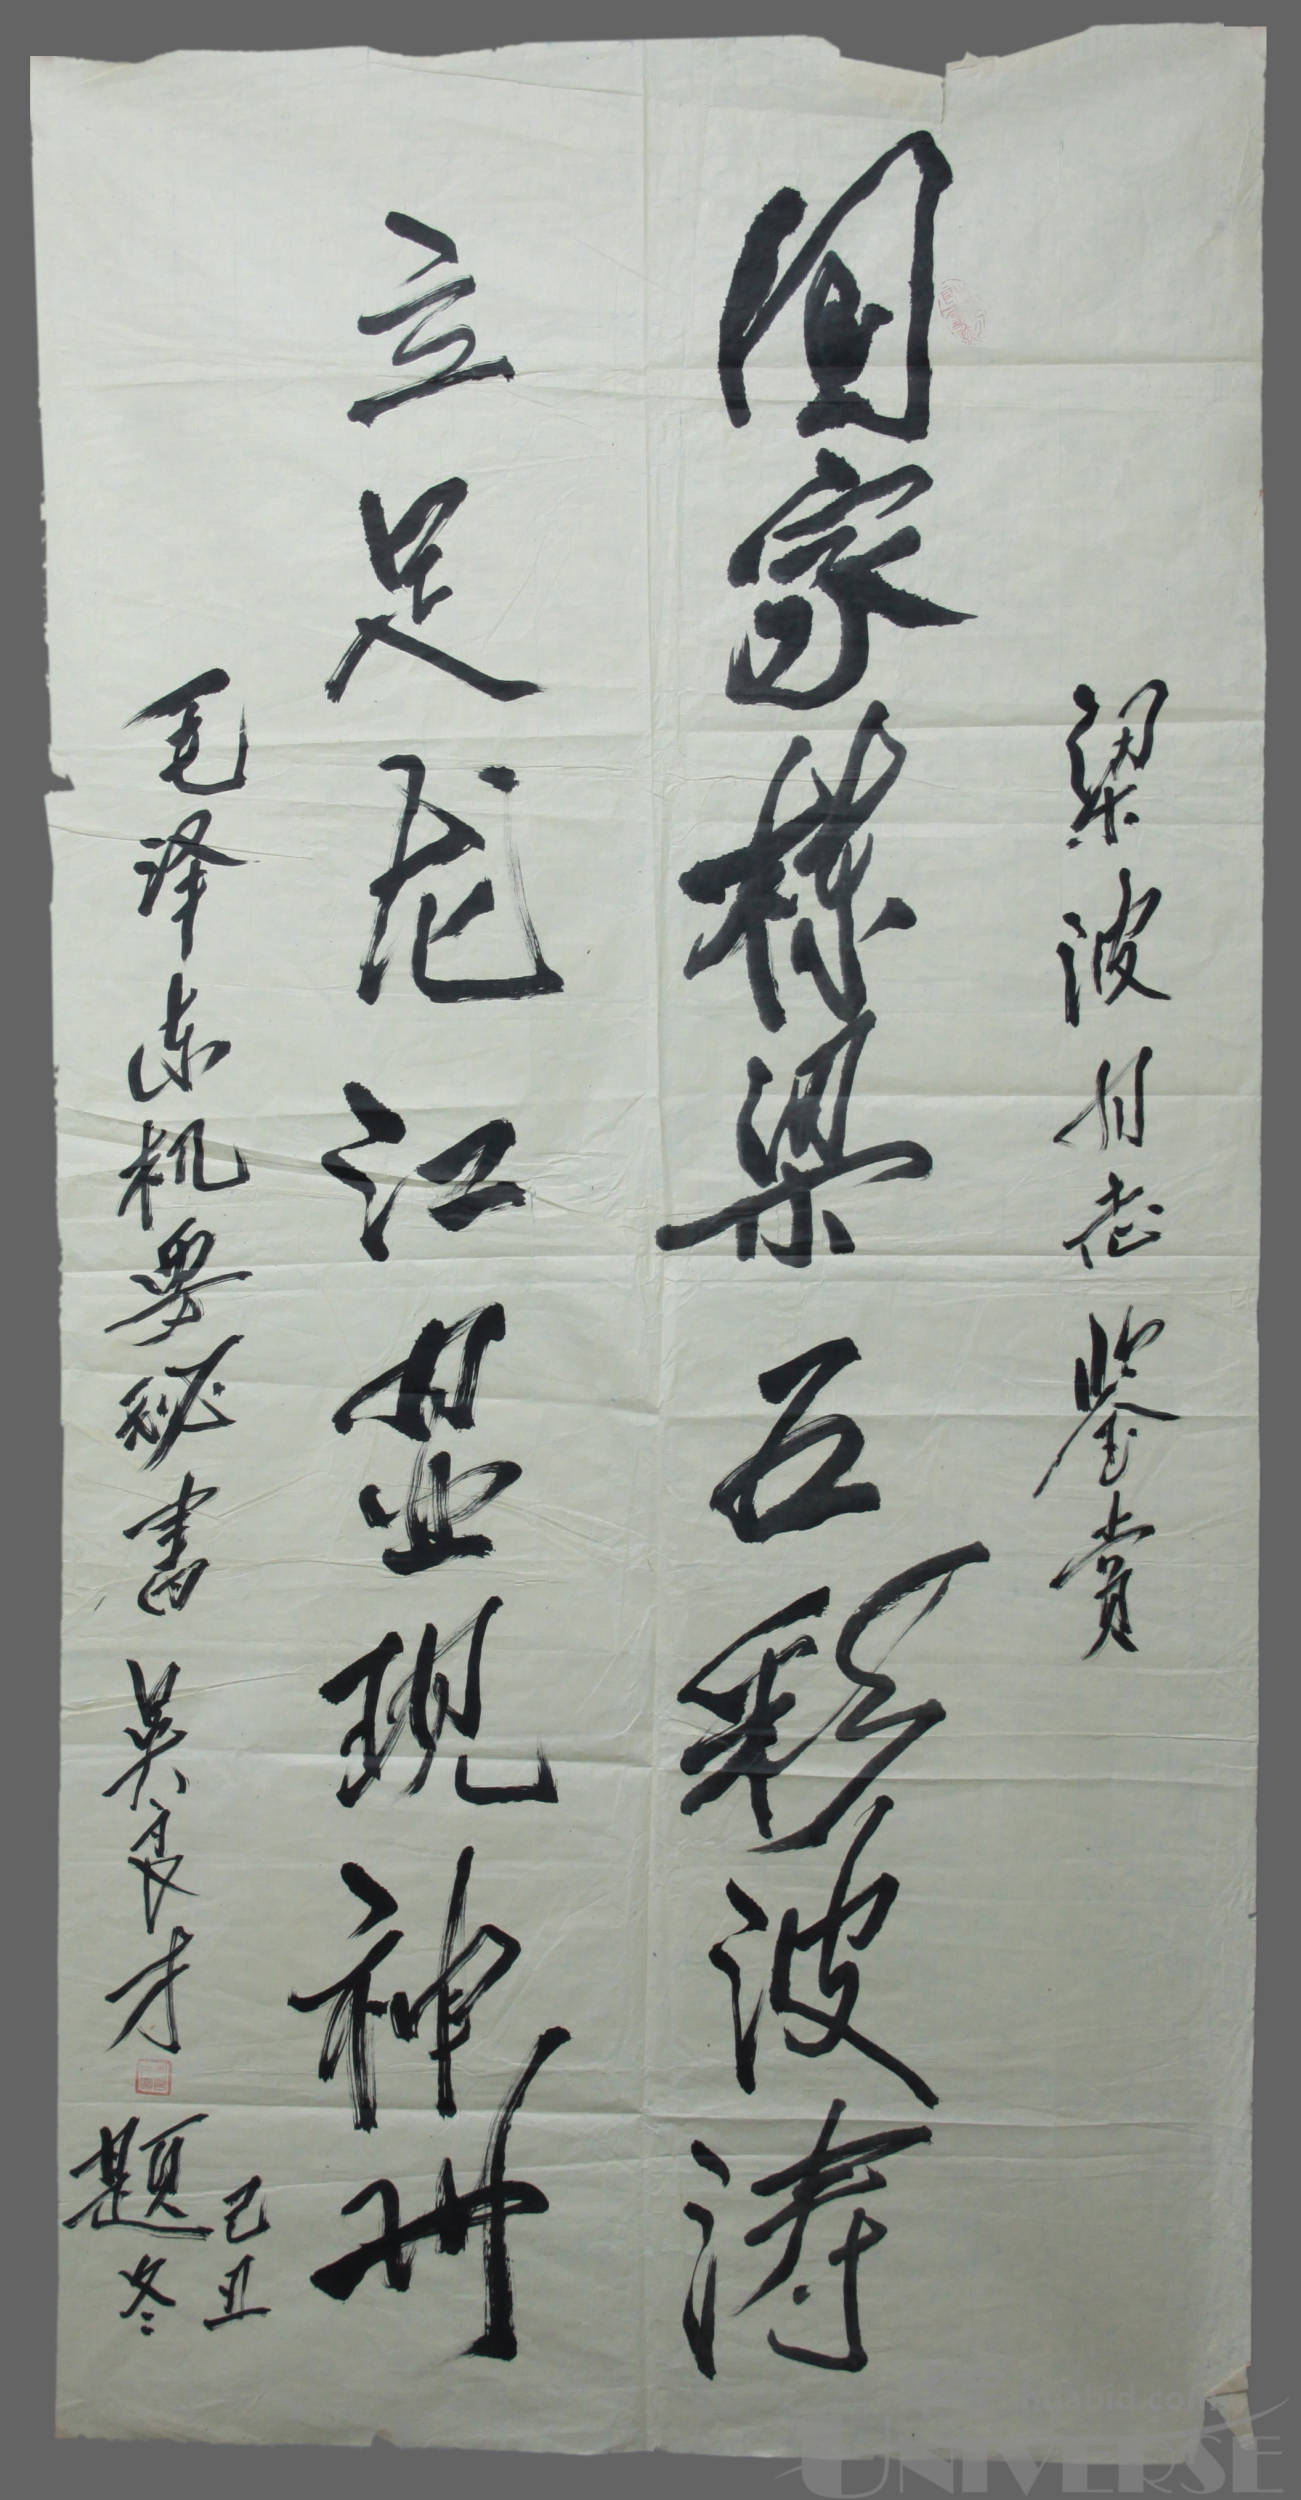 梁波同志鉴赏
国家栋梁五彩波涛
立足龙江显现神州
毛泽东机要秘书吴良才题
己丑
冬
huabid.com
UNIVERSE